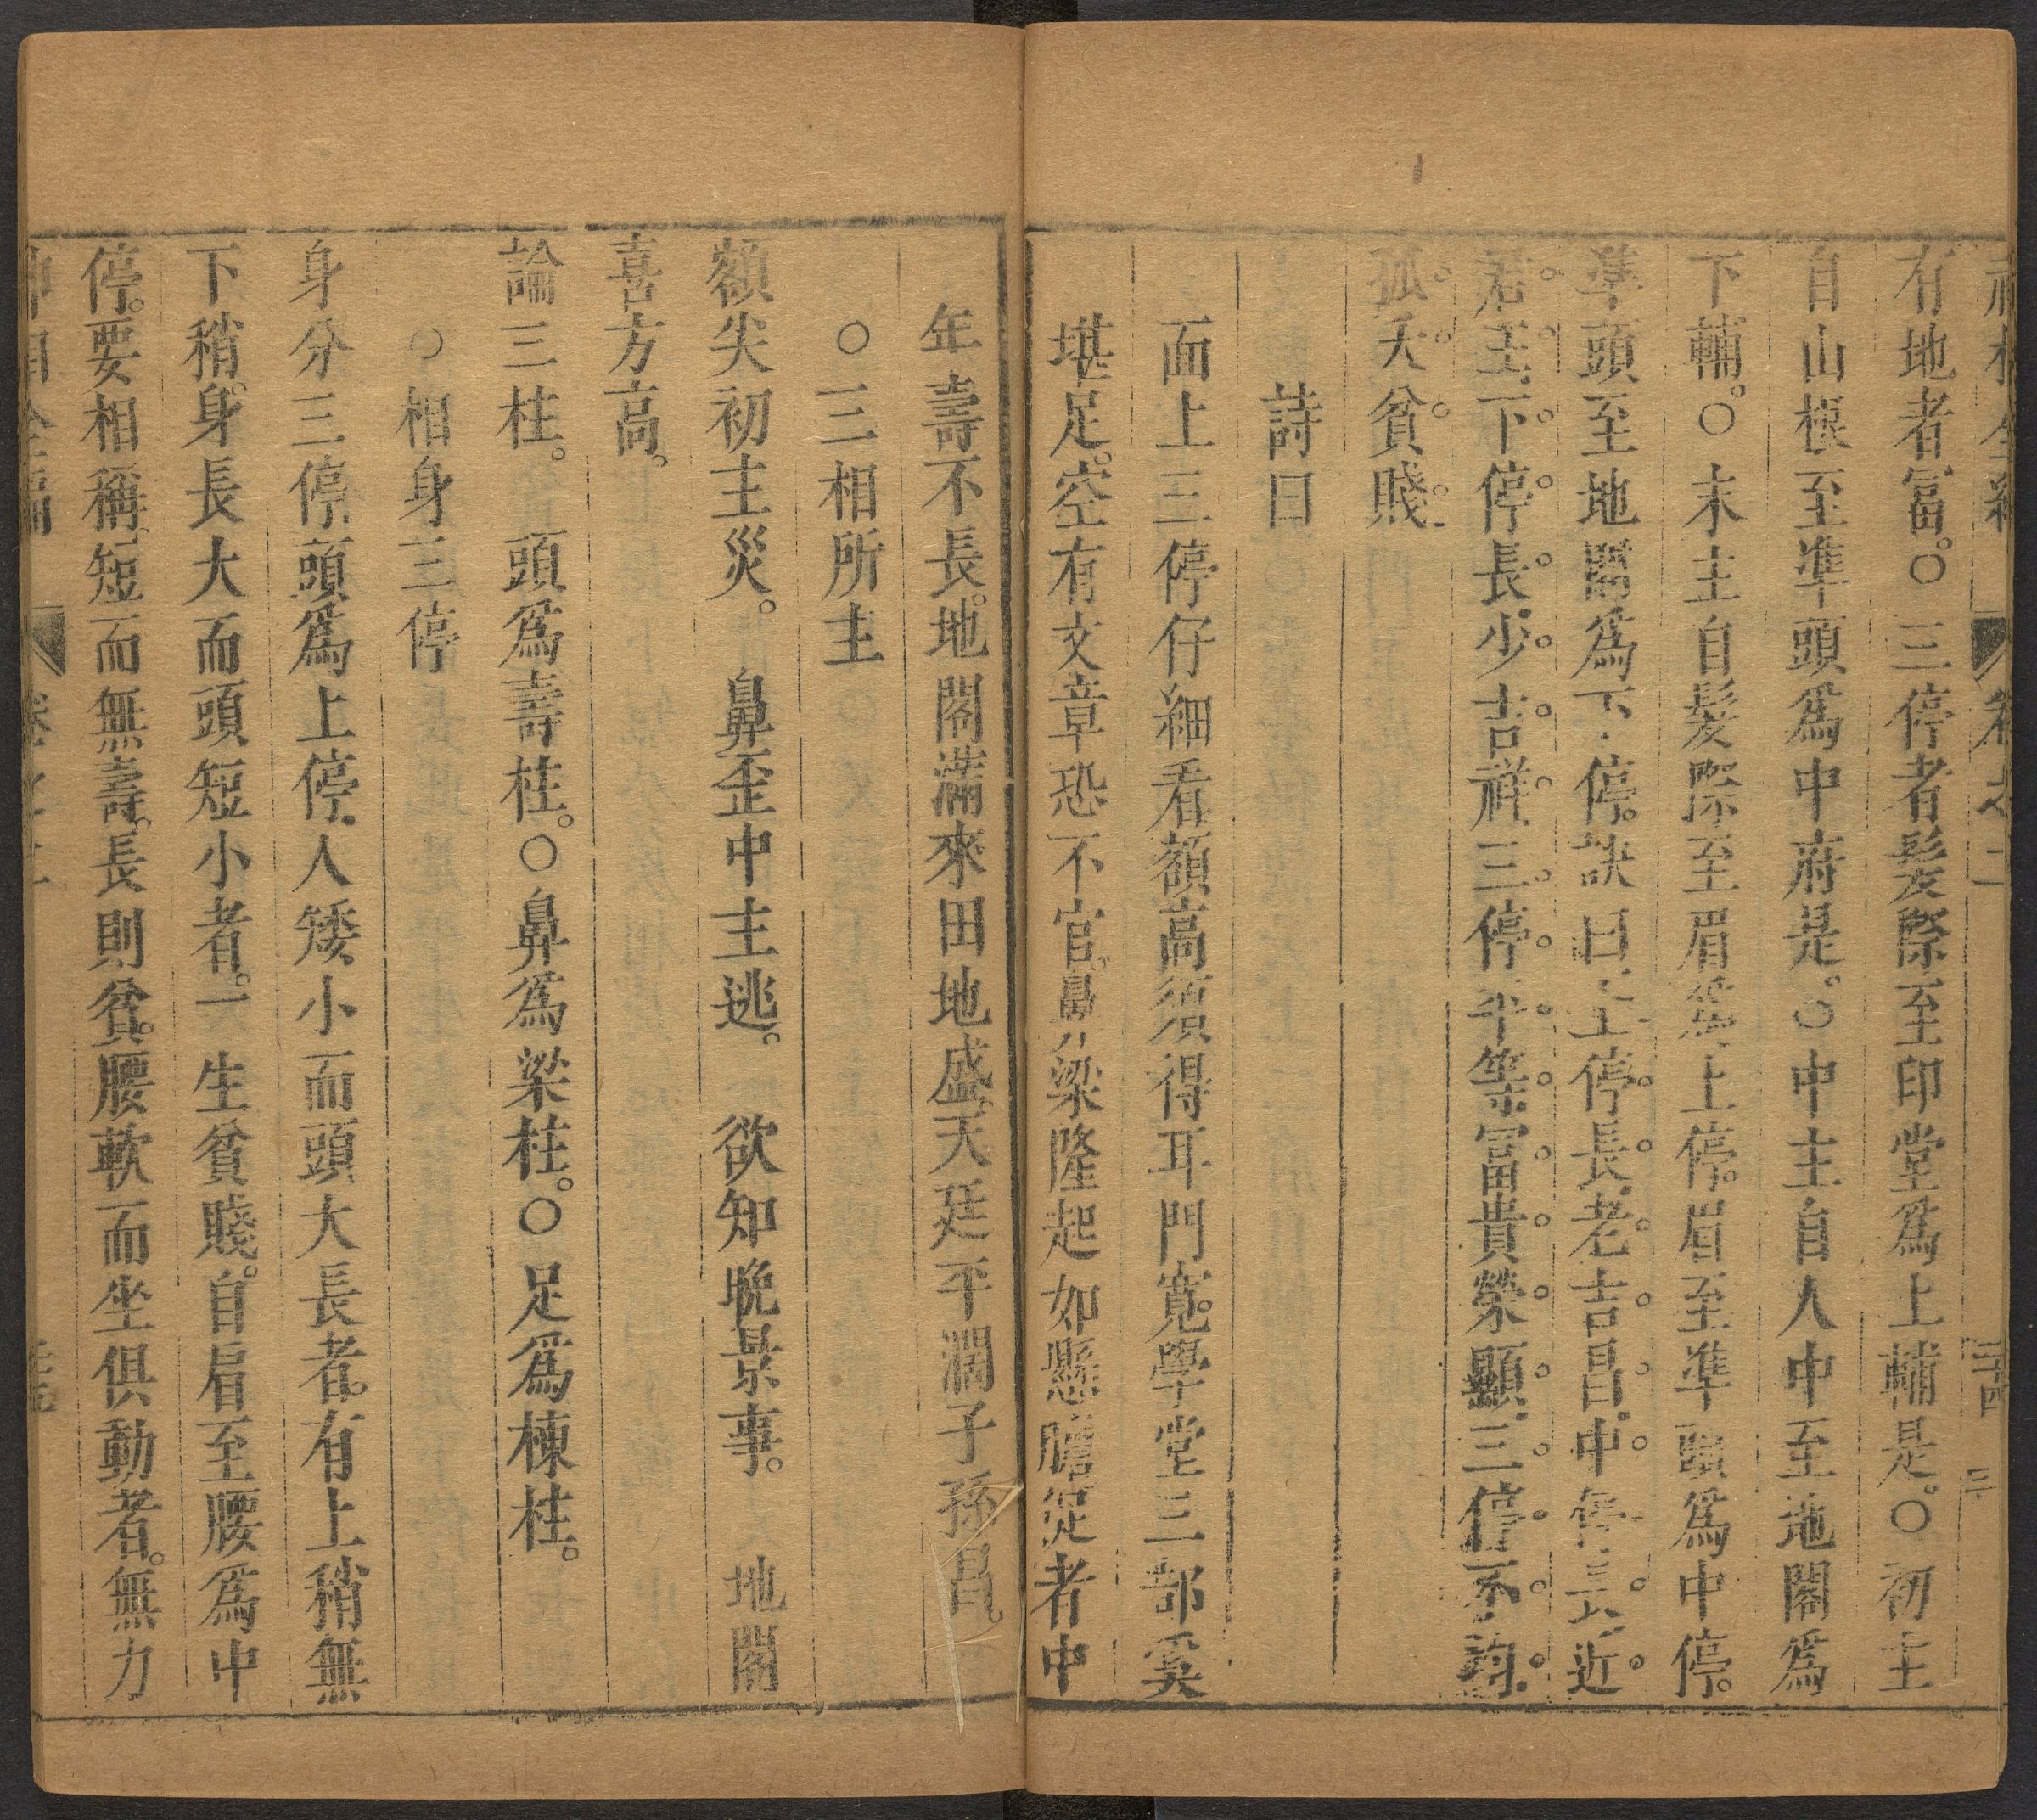 神相全編 卷之二 三十四 三
有地者富。○三停者髮際至印堂為上輔是。○初主
自山根至準頭為中府是。○中主自人中至地閣為
下輔。○末主自髮際至眉為上停。眉至準頭為中停。
準頭至地閣為下停。訣曰上停長老吉昌中停長近
君王下停長少吉祥三停平等富貴榮顯三停不均
孤夭貧賤
詩曰
面上三停仔細看額高須得耳門寬。學堂三部奚
堪足。空有文章恐不官。鼻梁隆起如懸膽促者中
年壽不長。地閣滿來田地盛天廷平濶子孫昌。
○三相所主
額尖初主災。 鼻歪中主逃。 欲知晚景事。 地閣
喜方高。
論三柱。 頭為壽柱。○鼻為梁柱。○足為棟柱。
○相身三停
身分三停頭為上停人矮小而頭大長者。有上稍無
下稍。身長大而頭短小者。一生貧賤。自肩至腰為中
停。要相稱短而無壽。長則貧。腰軟而坐俱動者。無力
神相全編 卷之二